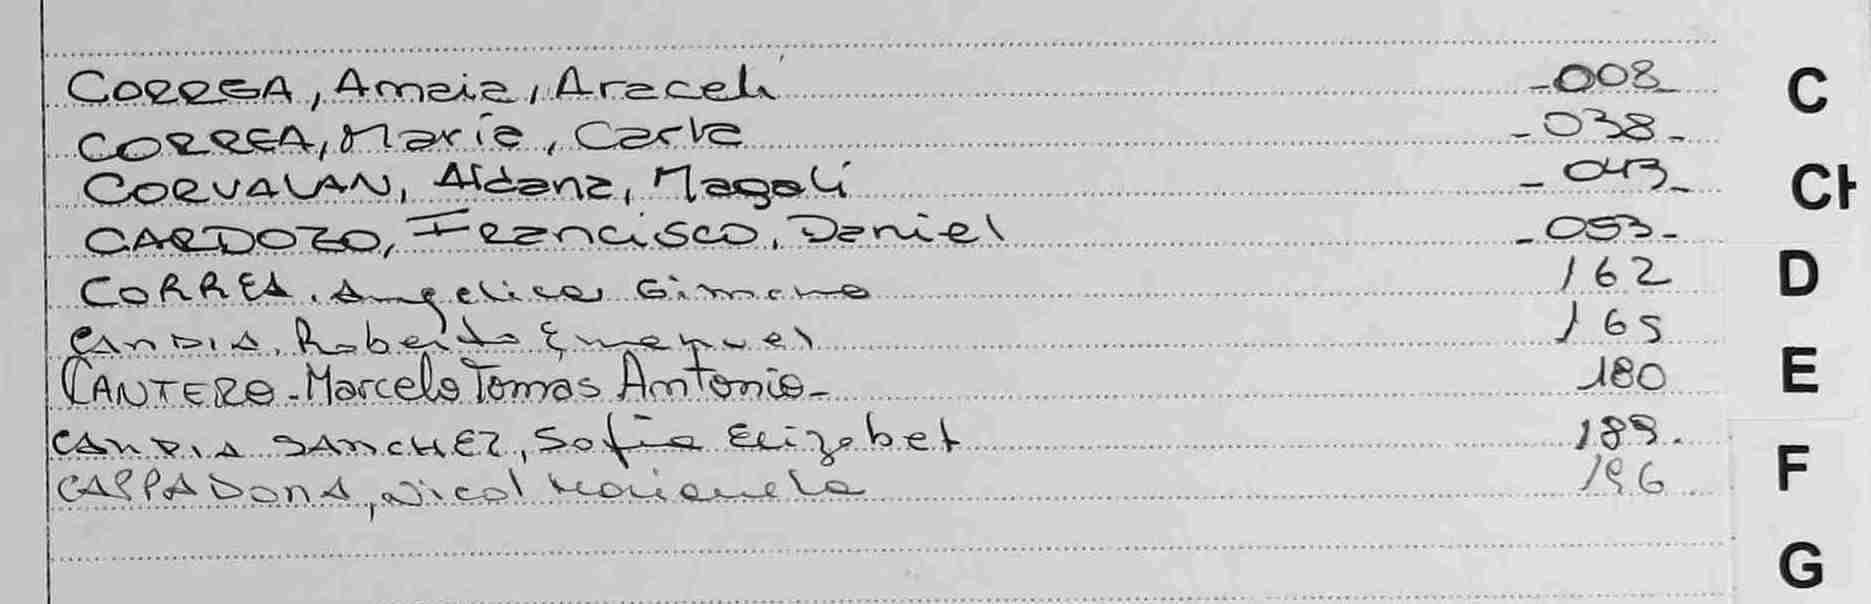 CORREA, Amaia, Araceli -008- C
CORREA, Maria, Carla -038-
CORVALAN, Aldana, Magali -043- CH
CARDOZO, Francisco, Daniel -053-
CORREA. Angelica Gimena 162 D
CANDIA. Roberto Emanuel 165
CANTERO-Marcelo Tomas Antonio- 180 E
CANDIA SANCHEZ, Sofia Elizabet 189.
CAPPADONA, Nicol Marianela 196 F
G